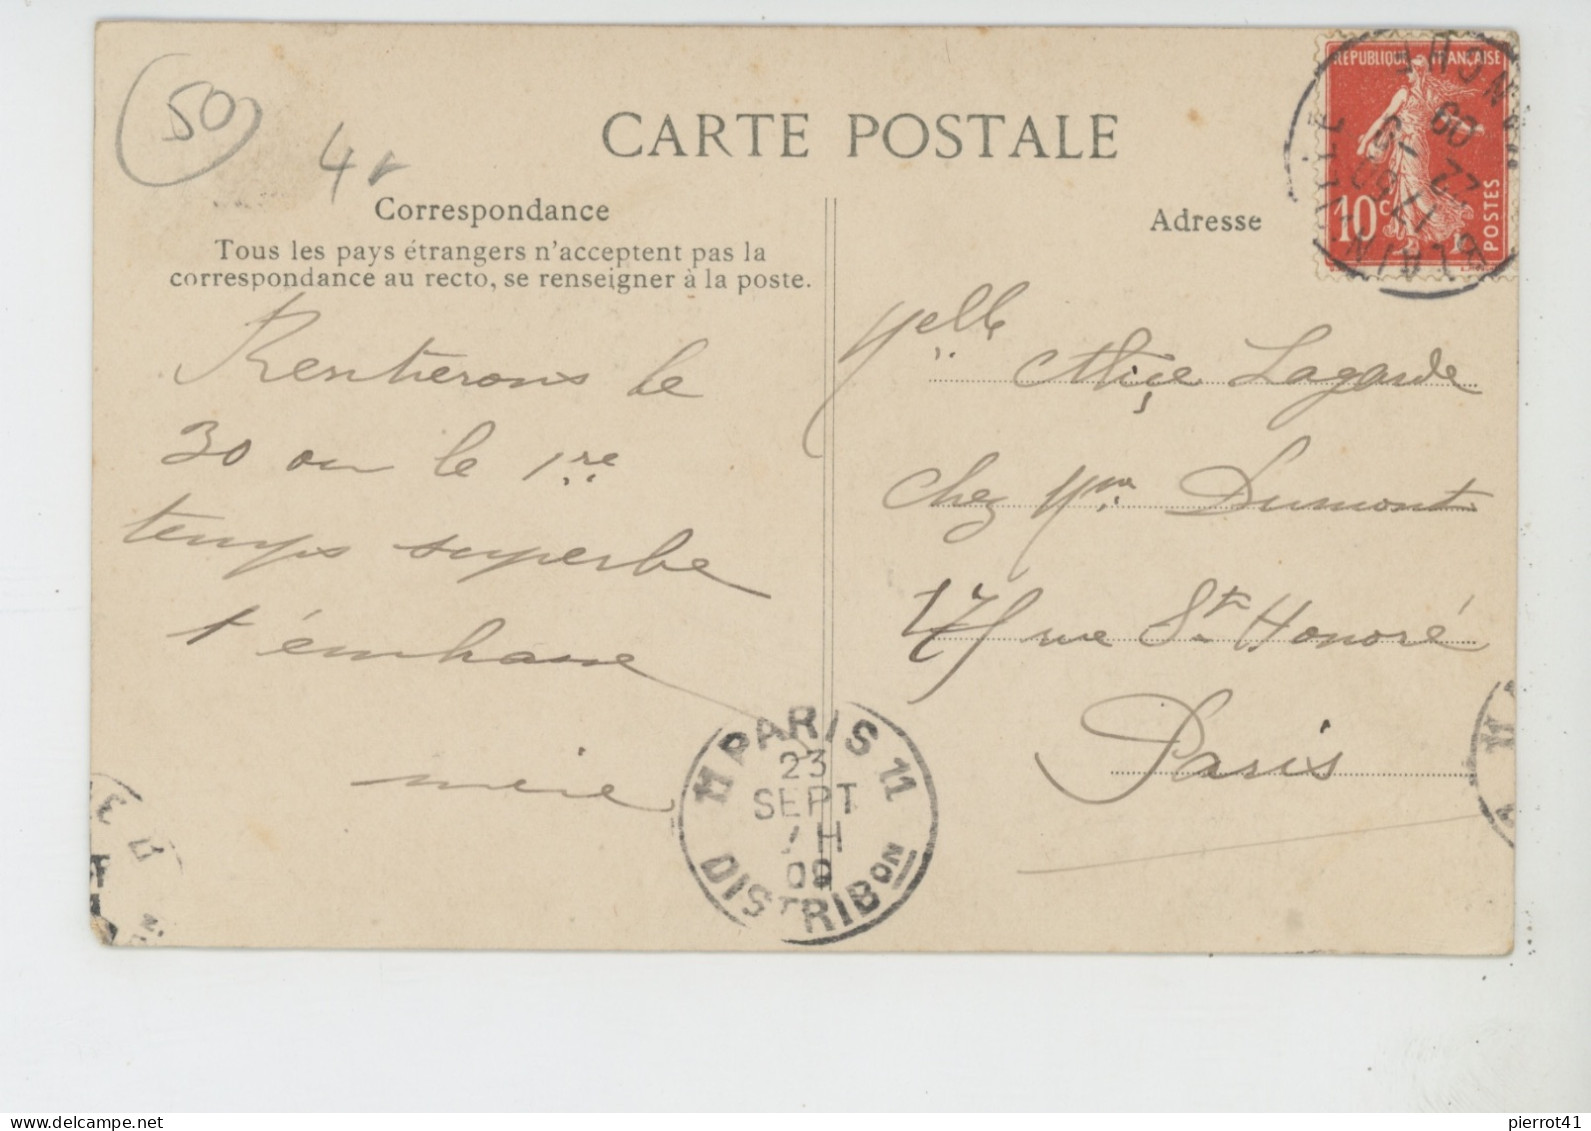 50
4
CARTE POSTALE
Correspondance
Tous les pays étrangers n'acceptent pas la
correspondance au recto, se renseigner à la poste.
Rentrerons le
30 ou le 1re
temps superbe
t'embrasse
mère
Adresse
RÉPUBLIQUE FRANÇAISE
10c
POSTES
BLAINVILLE
22
09
Melle Alice Lagarde
chez Mme Dumont
175 rue St Honoré
Paris
11 PARIS 11
23
SEPT
H
09
DISTRIBON
pierrot41